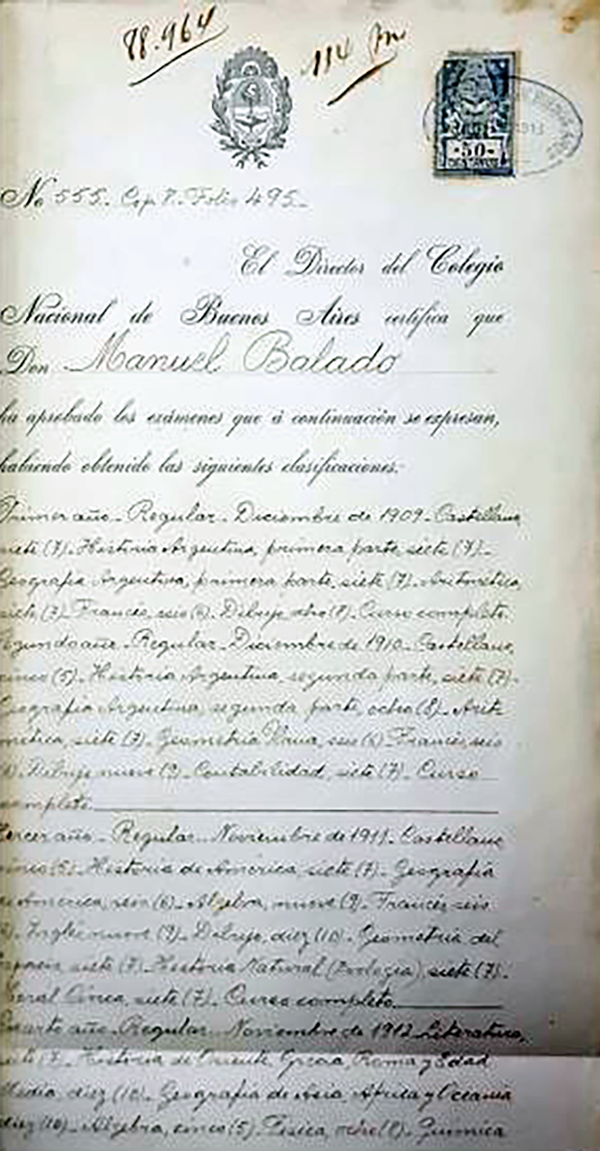 88.964
114
50
CENTAVOS
No 555. Cop. 8. Folio 495.
El Director del Colegio
Nacional de Buenos Aires certifica que
Don Manuel Balado
ha aprobado los exámenes que á continuación se expresan,
habiendo obtenido las siguientes clasificaciones:
Primer año. Regular. Diciembre de 1909. Castellano,
siete (7). Historia Argentina, primera parte, siete (7).
Geografía Argentina, primera parte, siete (7). Aritmética,
siete (7). Francés, seis (6). Dibujo, ocho (8). Curso completo.
Segundo año. Regular. Diciembre de 1910. Castellano,
cinco (5). Historia Argentina, segunda parte, siete (7).
Geografía Argentina, segunda parte, ocho (8). Arit-
mética, siete (7). Geometría Plana, seis (6). Francés, seis
(6). Dibujo, nueve (9). Contabilidad, siete (7). Curso
completo.
Tercer año. Regular. Noviembre de 1911. Castellano,
cinco (5). Historia de América, siete (7). Geografía
de América, seis (6). Algebra, nueve (9). Francés, seis
(6). Inglés, nueve (9). Dibujo, diez (10). Geometría del
Espacio, siete (7). Historia Natural (Zoología), siete (7).
Moral Cívica, siete (7). Curso completo.
Cuarto año. Regular. Noviembre de 1912. Literatura,
siete (7). Historia de Oriente, Grecia, Roma y Edad
Media, diez (10). Geografía de Asia, Africa y Oceanía
diez (10). Algebra, cinco (5). Física, ocho (8). Química